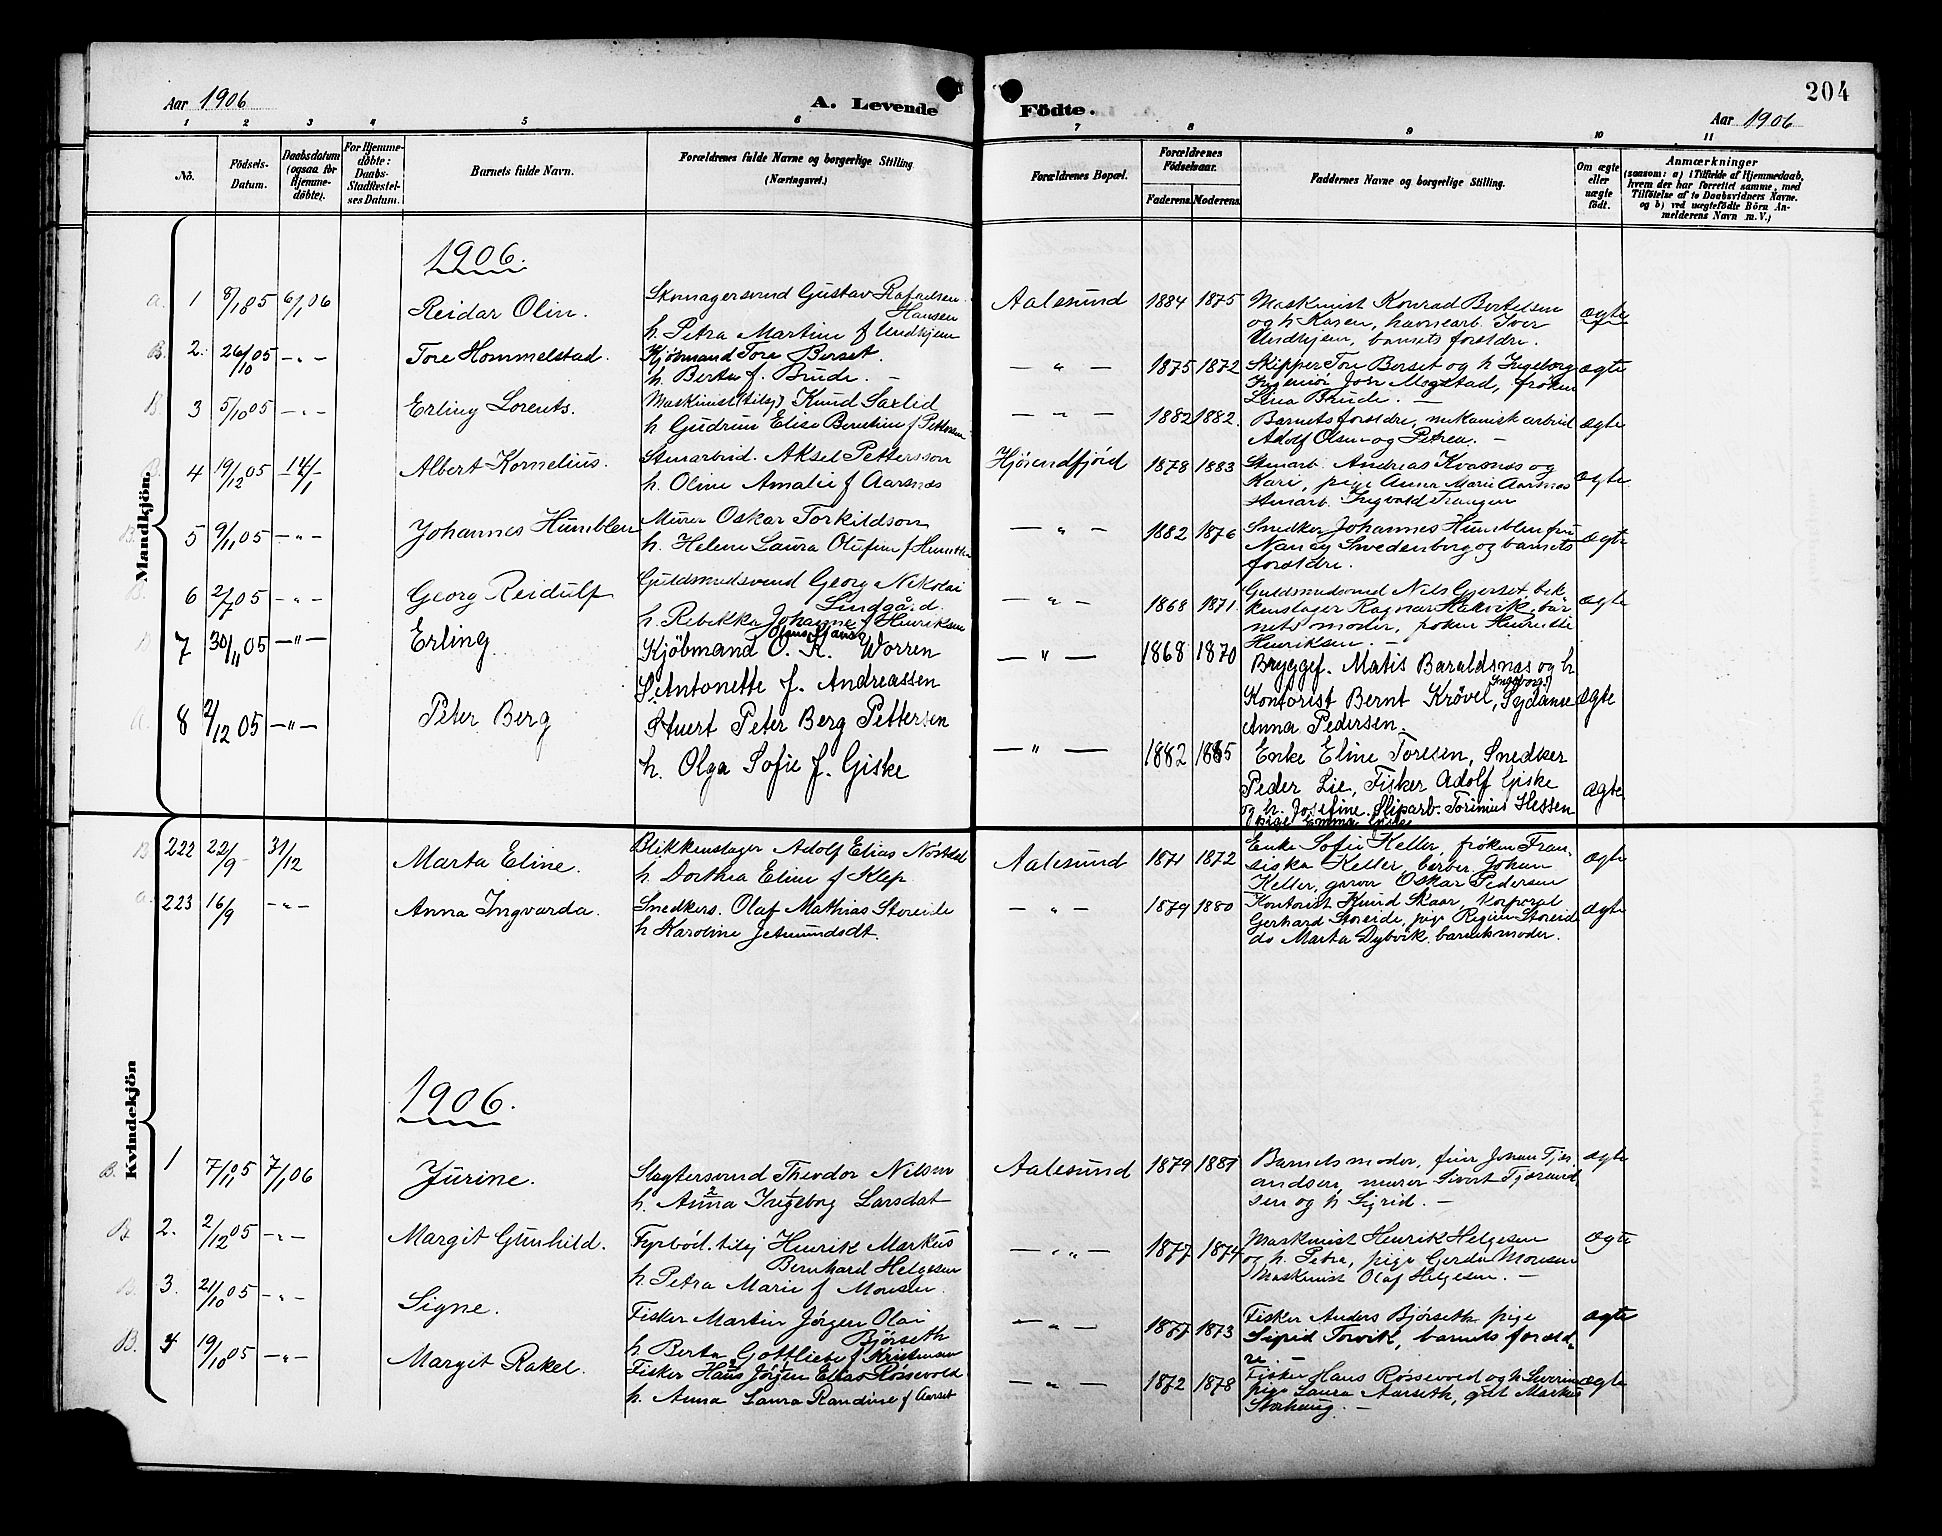 204
Aar 1906
A. Levende Födte.
Aar 1906
1 2 3 4 5 6 7 8 9 10 11
No.
Födsels-Datum.
Daabsdatum (ogsaa for Hjemme-döbte).
For Hjemme-döbte: Daabs-Stadfæstel-ses Datum.
Barnets fulde Navn.
Forældrenes fulde Navne og borgerlige Stilling.
(Næringsvei.)
Forældrenes Bopæl.
Forældrenes Födselsaar.
Faderens. Moderens.
Faddernes Navne og borgerlige Stilling.
Om ægte eller uægte födt.
Anmærkninger
(saasom: a) i Tilfælde af Hjemmedaab,
hvem der har forrettet samme, med
Tilföielse af to Daabsvidners Navne.
og b) ved uægtefödte Börn An-
melderens Navn m. V.)
Mandkjön.
1906.
a. 1 8/1805 6/1 06 Reidar Olin. Skomagersvend Gustav Rafaelsen Hansen
h. Petra Martine f Undhjem
Aalesund 1884 1875 Maskinist Konrad Bertelsen
og h Karen, havnearb. Iver
Undhjem, barnets forældre. ægte
B. 2. 26/10 05 -"- Tore Hommelstad. Kjøbmand Tore Berset.
h. Berta f. Brude. -
- " - 1875 1872 Skipper Tore Berset og h Ingeborg
Ingeniør Jon Mogstad, frøken
Lina Brude. - ægte
B. 3 5/10 05 -"- Erling Lorents. Maskinist (tilsj) Knud Saxlid
h Gudrun Elise Berntine f Pettersen
- " - 1882 1882. Barnets forældre, mekanisk arbeid
Adolf Olsen og Petrea. - ægte
4 19/12 05 14/1 Albert Kornelius. Stenarbeid. Aksel Pettersson
h. Oline Amalie f Aarsnes
Hjørendfjord 1878 1883 Stenarb. Andreas Kvasnes og
Kari, pige Anna Marie Aarsnes
stenarb. Ingvald Frangen ægte
B. 5 9/11 05 -"- Johannes Humblen Murer Oskar Torkildson
h. Helene Laura Olufine f Humblen
- " - 1882 1876 Snedker Johannes Humblen fru
Nancy Swedenborg og barnets
forældre. ægte
B. 6 2/7 05 -"- Georg Reidulf Guldsmedsvend Georg Nikolai
Lindgård.
h. Rebekka Johanne f Henriksen
- " - 1868 1871. Guldsmedsvend Nils Gjerset, blik
kenslager Ragnar Hakvik, bar
nets moder, frøken Henriette
Henriksen. - ægte
B 7 30/11 05 -"- Erling Kjöbmand O. K. Worren
h. Antonette f. Andreassen
- " - 1868 1870 Bryggef. Matis Baraldsnas og h
Ingeborg
Kontorist Bernt Krövel, Sydame
Anna Pedersen. ægte
a. 8 2/12 05 -"- Peter Berg Stuert Peter Berg Pettersen
h. Olga Sofie f. Giske
- " - 1882 1885 Enke Eline Toresen, Snedker
Peder Lie, Fisker Adolf Giske
og h. Josefine. Sliparb. Torinius Hessen
pige Emma Giske ægte
Kvindekjön
B 222 22/9 31/12 Marta Eline. Blikkenslager Adolf Elias Nøstdal
h. Dorthea Eline f Klep.
Aalesund 1871 1872 Enke Sofie Keller, frøken Fran-
siska Keller, barber Johan
Keller, garver Oskar Pedersen ægte
a. 223 16/9 -"- Anna Ingvarda. Snedkers. Olaf Mathias Storeide
h Karoline Jetmundsdt.
- " - 1879 1880 Kontorist Knud Skaar, Korporal
Gerhard Storeide, pige Regine Storeide
do Marta Dybvik, barnets moder. ægte
1906.
B. 1 7/11 05 7/1 06 Jurine. Slagtersvend Theodor Nilsen
h. Anna Ingeborg Larsdat
Aalesund 1879 1881 Barnets moder, feier Johan Tjer
andsen, murer Sivert Tjerand
sen og h Sigrid. - ægte
B. 2. 2/12 05 -"- Margit Gunhild. Fyrbød. tilsj Henrik Markus
Bernhard Helgesen
h. Petra Marie f Monsen
- " - 1877 1874 Maskinist Henrik Helgesen
og h. Petra, pige Gerda Monsen
Maskinist Olaf Helgesen. - ægte
B. 3. 21/10 05 -"- Signe. Fisker Martin Jørgen Olai
Bjørseth
h. Berta Gottliebe f Kristensen
- " - 1877 1873 Fisker Anders Bjørseth pige
Sigrid Torvik, barnets foræld-
re. - ægte
B. 4 19/10 05 -"- Margit Rakel. Fisker Hans Jørgen Elias Røssevold
h. Anna Laura Randine f Aarset
- " - 1872 1878 Fisker Hans Røssevold og h Severine
pige Laura Aarseth, gut Markus
Storhaug. - ægte